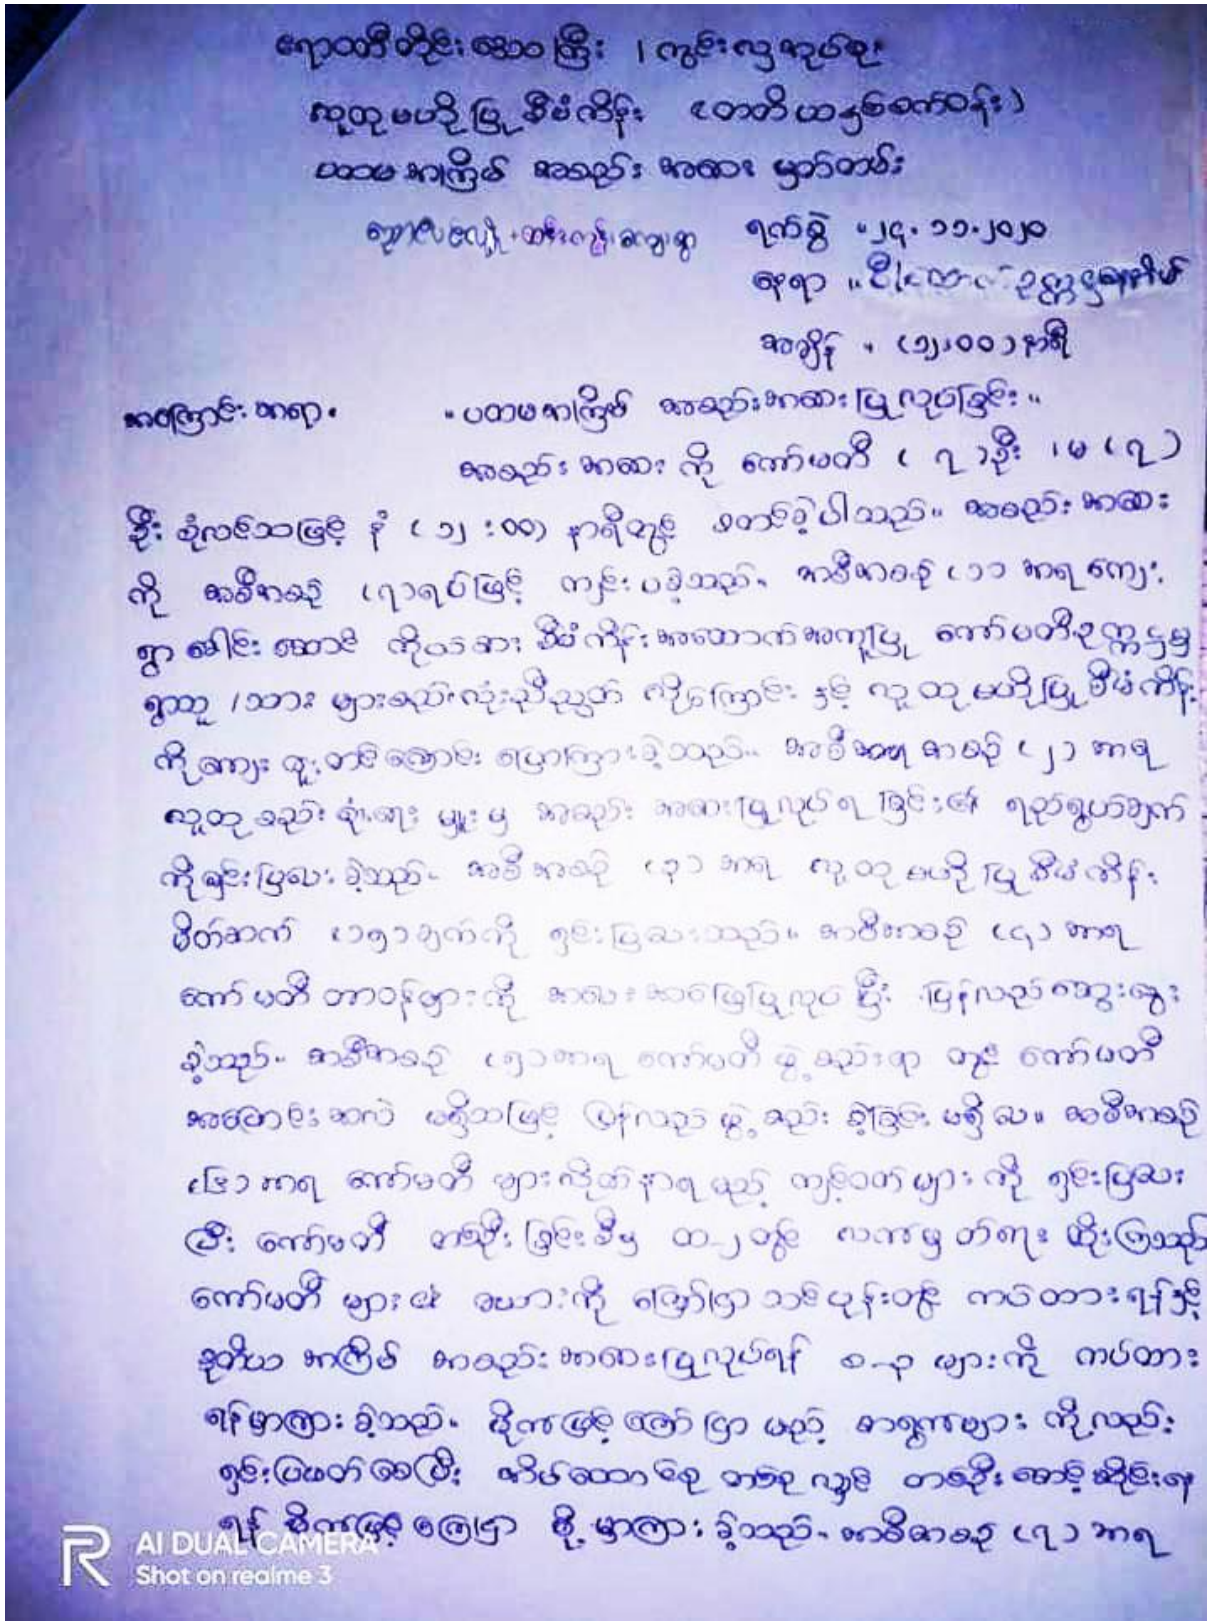 ဧရာဝတီတိုင်းဒေသကြီး ၊
လူထုဗဟိုပြုစီမံကိန်း (တတိယနှစ်စက်ဝန်း)
ပထမအကြိမ် အစည်းအဝေး မှတ်တမ်း
ရက်စွဲ ။ ၂၄.၁၁.၂၀၂၀
နေရာ ။ ဥက္ကဋ္ဌနေအိမ်
အချိန် ။ (၁၂:၀၀) နာရီ
အကြောင်းအရာ။ ။ပထမအကြိမ် အစည်းအဝေးပြုလုပ်ခြင်း။
အစည်းအဝေး ကို ကော်မတီ ( ၇ )ဦး ၊ မ ( ၇ )
ဦး စုံလင်သဖြင့် နံ (၁၂ :၀၀) နာရီတွင် စတင်ခဲ့ပါသည်။ အစည်းအဝေး
ကို အစီအစဉ် (၇)ရပ်ဖြင့် ကျင်းပခဲ့သည်။ အစီအစဉ် (၁) အရ ကျေး
ရွာ ခေါင်းဆောင် ကိုယ်စား စီမံကိန်းအထောက်အကူပြု ကော်မတီဥက္ကဋ္ဌမှ
ရွာသူ/သား များစည်းလုံးညီညွတ် လို့ကြောင်း နှင့် လူထုဗဟိုပြုစီမံကိန်း
ကို ကျေးဇူးတင်ကြောင်း ပြောကြားခဲ့သည်။ အစီအစဉ် (၂) အရ
လူထုစည်းရုံးရေးမှူးမှ အစည်းအဝေးပြုလုပ်ရခြင်း၏ ရည်ရွယ်ချက်
ကိုရှင်းပြပေးခဲ့သည်။ အစီအစဉ် (၃) အရ လူထုဗဟိုပြုစီမံကိန်း
မိတ်ဆက် (၁၅)ချက်ကို ရှင်းပြပေးသည်။ အစီအစဉ် (၄) အရ
ကော်မတီတာဝန်များကို အမေးအဖြေပြုလုပ်ပြီး ပြန်လည်ဆွေးနွေး
ခဲ့သည်။ အစီအစဉ် (၅) အရ ကော်မတီဖွဲ့စည်းရာ တွင် ကော်မတီ
အပြောင်းအလဲ မရှိသဖြင့် ပြန်လည်ဖွဲ့စည်းခဲ့ခြင်း မရှိပေ။ အစီအစဉ်
(၆) အရ ကော်မတီ များလိုက်နာရမည့် ကျင့်ဝတ်များ ကို ရှင်းပြပေး
ပြီး ကော်မတီ တစ်ဦးခြင်းစီမှ ထ-၂ တွင် လက်မှတ်ရေး ထိုးကြသည်
ကော်မတီ များ၏ စာရင်းကို ကြော်ငြာသင်ပုန်းတွင် ကပ်ထားရန်နှင့်
ဒုတိယအကြိမ် အစည်းအဝေးပြုလုပ်ရန် စ-၃ များကို ကပ်ထား
ရန်မှာကြားခဲ့သည်။ မိုက်ဖြင့်ကြော်ငြာ မည့် အချက်များ ကိုလည်း
ရှင်းပြဖတ်စေပြီး အိမ်ထောင်စု တစ်စုလျှင် တစ်ဦး
ရန် မိုက်ဖြင့်ကြော်ငြာ ဖို့မှာကြားခဲ့သည်။ အစီအစဉ် (၇) အရ
AI DUAL CAMERA
Shot on realme 3